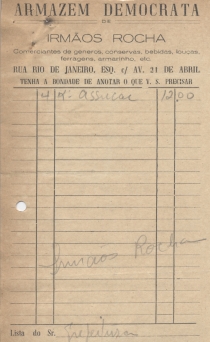 ARMAZEM DEMOCRATA
DE
IRMÃOS ROCHA
Comerciantes de generos, conservas, bebidas, louças,
ferragens, armarinho, etc.
RUA RIO DE JANEIRO, ESQ. c/ AV. 21 DE ABRIL
TENHA A BONDADE DE ANOTAR O QUE V. S. PRECISAR
4 K. Assucar 12,00
Irmãos Rocha
Lista do Sr. Prefeitura